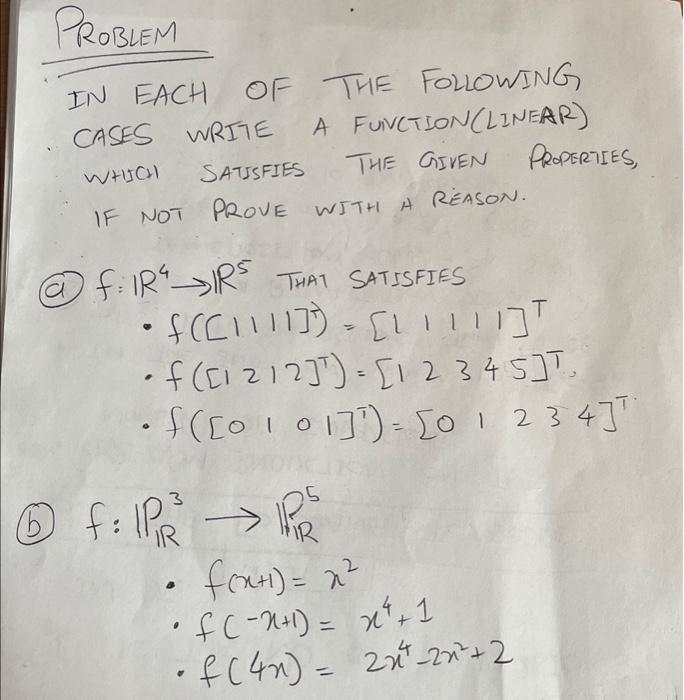 PROBLEM
IN EACH OF THE FOLLOWING
CASES WRITE A FUNCTION(LINEAR)
WHICH SATISFIES THE GIVEN PROPERTIES,
IF NOT PROVE WITH A REASON.
ⓐ f: ℝ⁴ → ℝ⁵ THAT SATISFIES
• f([1 1 1 1]ᵀ) = [1 1 1 1 1]ᵀ
• f([1 2 1 2]ᵀ) = [1 2 3 4 5]ᵀ.
• f([0 1 0 1]ᵀ) = [0 1 2 3 4]ᵀ
ⓑ f: ℙ³_ℝ → ℙ⁵_ℝ
• f(x+1) = x²
• f(-x+1) = x⁴+1
• f(4x) = 2x⁴-2x²+2